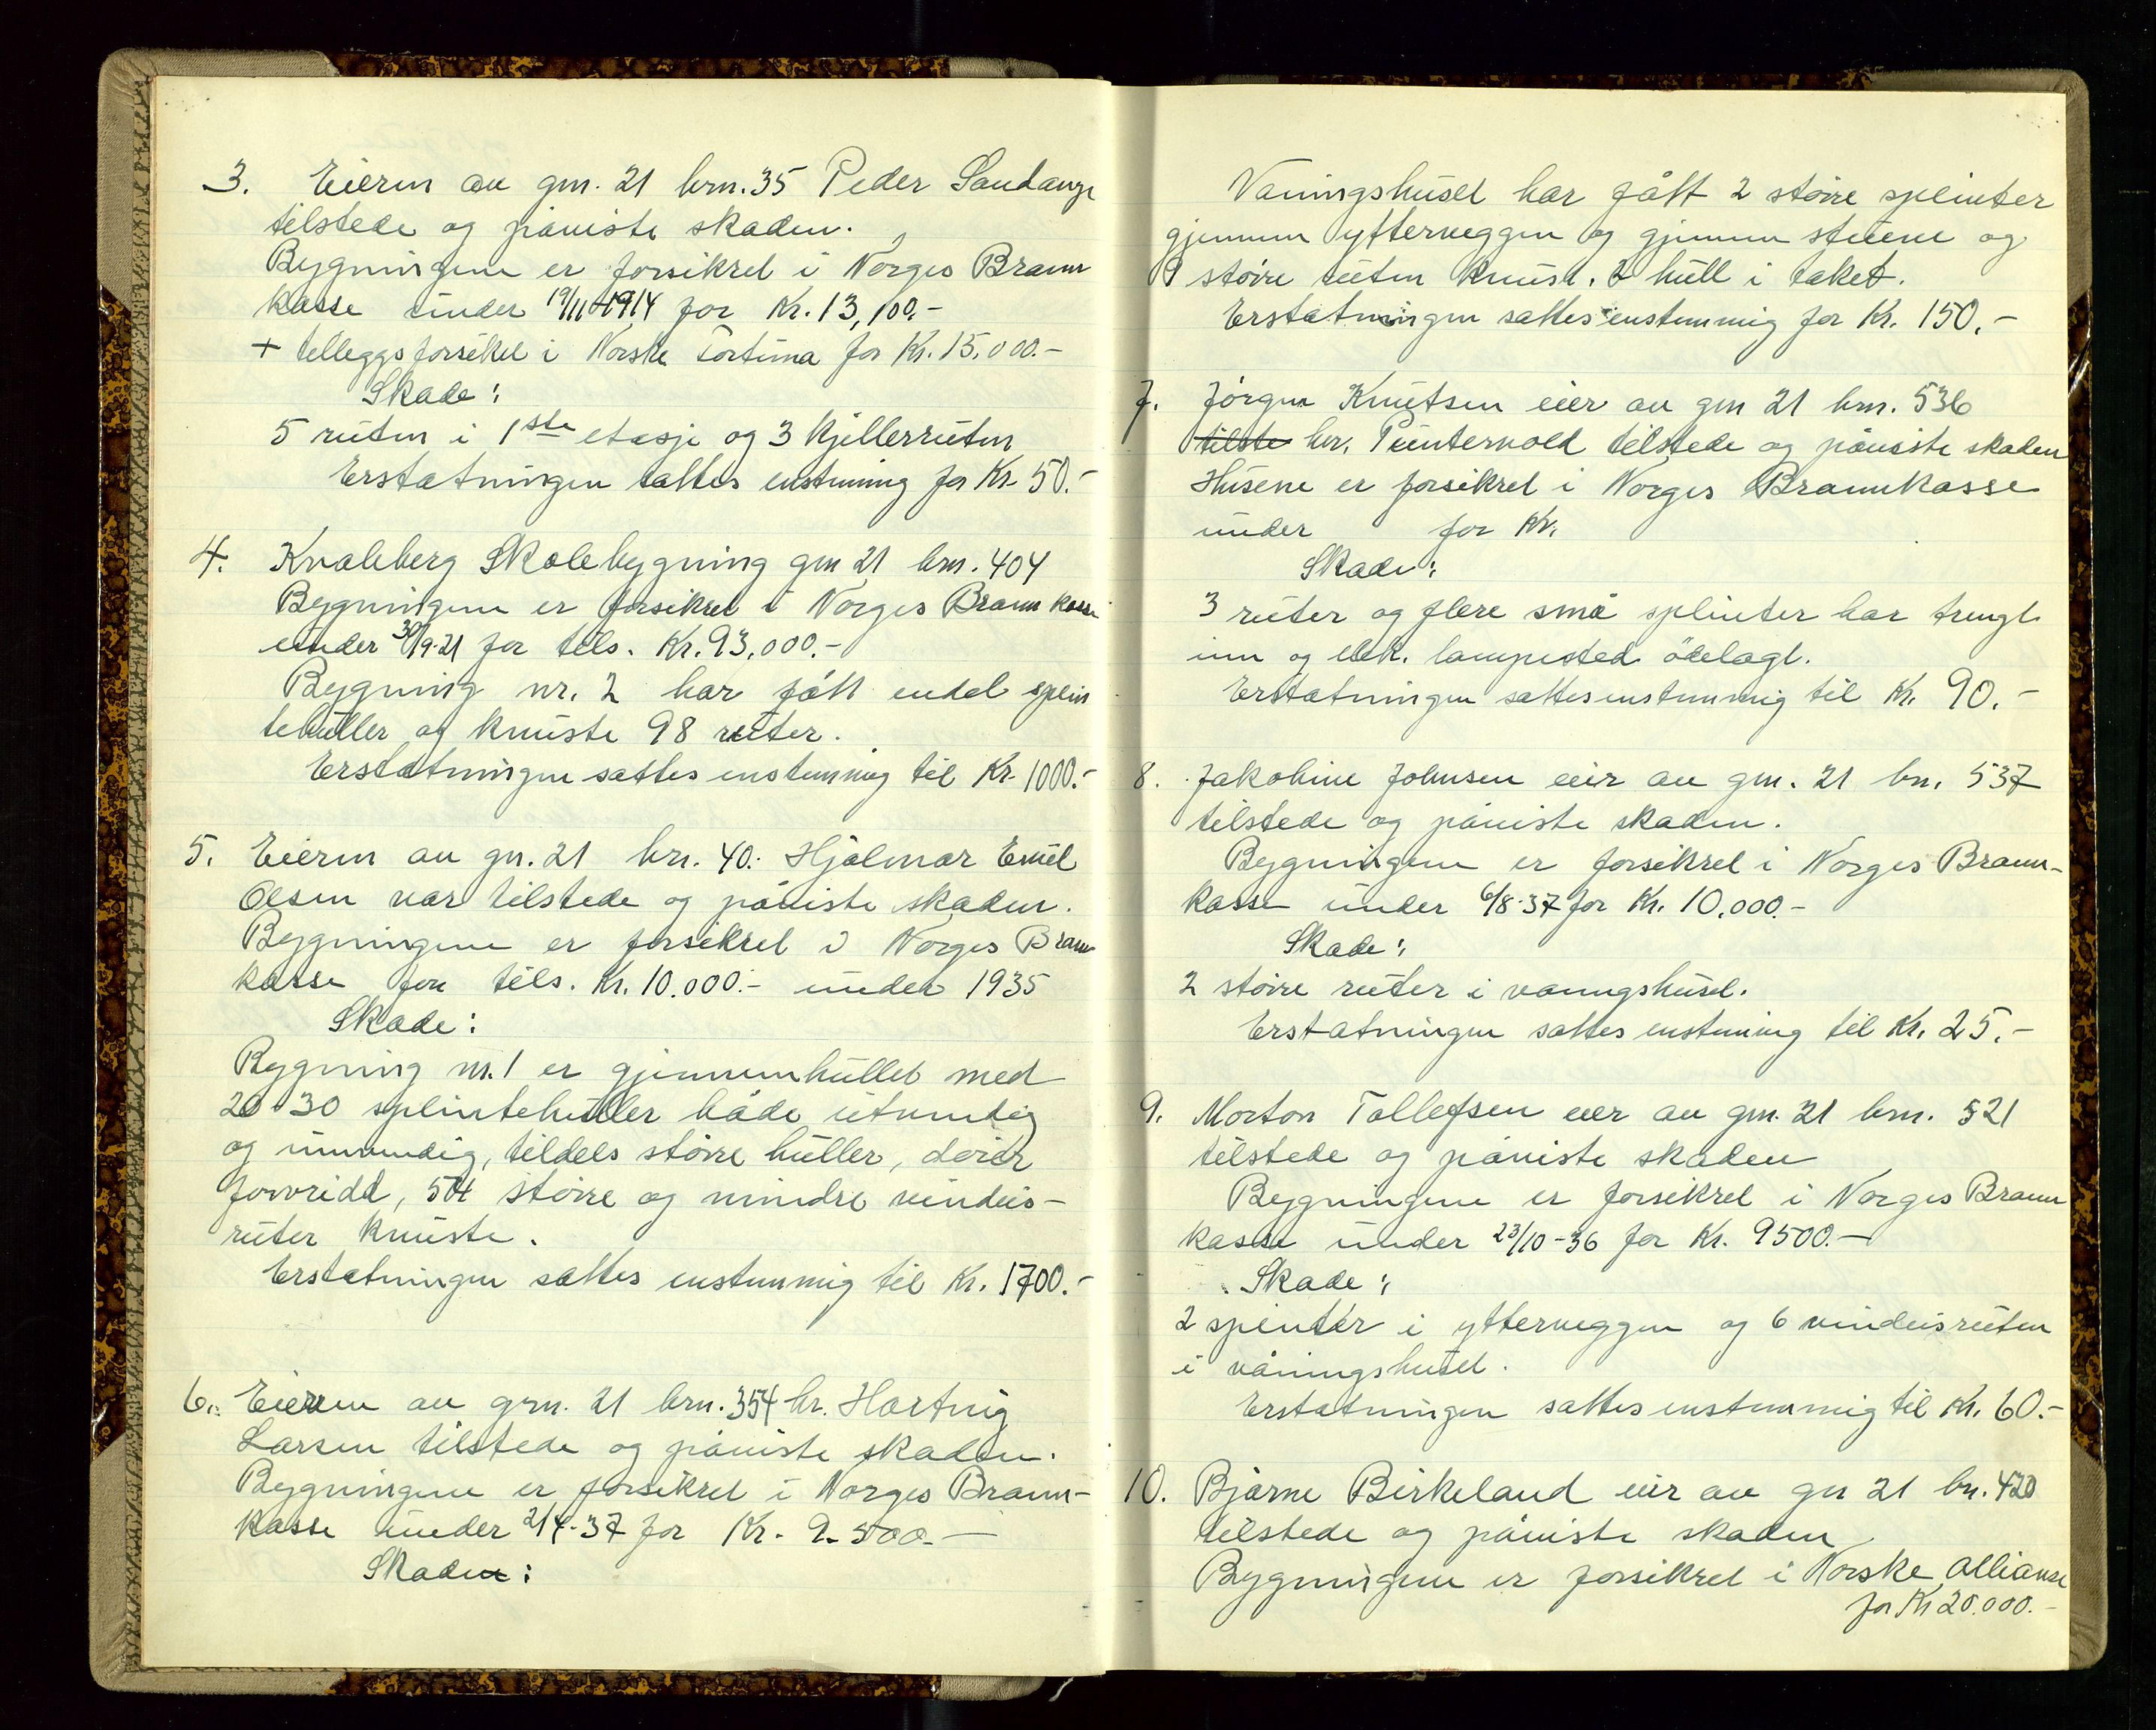 3. Eieren av gnr. 21 brn. 35 Peder Sandanger
tilstede og påviste skaden.
Bygningene er forsikret i Norges Brann
kasse under 19/11-1914 for Kr. 13,100.-
+ tilleggsforsikret i Norske Fortuna for Kr. 15.000.-
Skade:
5 ruter i 1ste etasje og 3 kjellerruter
Erstatningen sattes enstemmig for Kr. 50.-
4. Kvaleberg Skolebygning gnr 21 brn. 404
Bygningene er forsikret i Norges Brann kasse
under 30/9-21 for tils. Kr. 93,000.-
Bygning nr. 2 har fått endel splin
tehuller og knuste 98 ruter.
Erstatningen sattes enstemmig til Kr. 1000.-
5. Eieren av gn. 21 brn. 40. Hjalmar Emil
Olsen var tilstede og påviste skaden.
Bygningene er forsikret i Norges Brann
kasse for tils. Kr. 10.000.- under 1935
Skade:
Bygning nr. 1 er gjennemhullet med
20-30 splintehuller både utvendig
og innvendig, tildels større huller, dører
forvridd, 54 større og mindre vindus-
ruter knuste.
Erstatningen sattes enstemmig til Kr. 1700.-
6. Eieren av grn. 21 brn. 354 hr. Hartvig
Larsen tilstede og påviste skaden.
Bygningene er forsikret i Norges Brann-
kasse under 2/4-37 for Kr. 9.500.-
Skaden:
Våningshuset har fått 2 større splinter
gjennem ytterveggen og gjennem stuene og
9 større ruter knust. 2 hull i taket.
Erstatningen sattes enstemmig for Kr. 150.-
7. Jørgen Knutsen eier av gnr 21 brn. 536
tilste hr. Puntervold tilstede og påviste skaden
Husene er forsikret i Norges Brannkasse
under for Kr.
Skade:
3 ruter og flere små splinter har trengt
inn og elek. lampested ödelagt.
Erstatningen sattes enstemmig til Kr. 90.-
8. Jakobine Johnsen eier av gnr. 21 bn. 537
tilstede og påviste skaden.
Bygningene er forsikret i Norges Brann-
kasse under 6/8-37 for Kr. 10.000.-
Skade:
2 større ruter i vaningshuset.
Erstatningen sattes enstemmig til Kr. 25.-
9. Morton Tollefsen eier av gnr. 21 brn. 521
tilstede og påviste skaden
Bygningene er forsikret i Norges Brann
kasse under 23/10-36 for Kr. 9500.-
Skade:
2 spinter i ytterveggen og 6 vindusruter
i våningshuset.
Erstatningen sattes enstemmig til Kr. 60.-
10. Bjarne Birkeland eier av gn 21 bn. 420
tilstede og påviste skaden
Bygningene er forsikret i Norske Allianse
for Kr 20.000.-